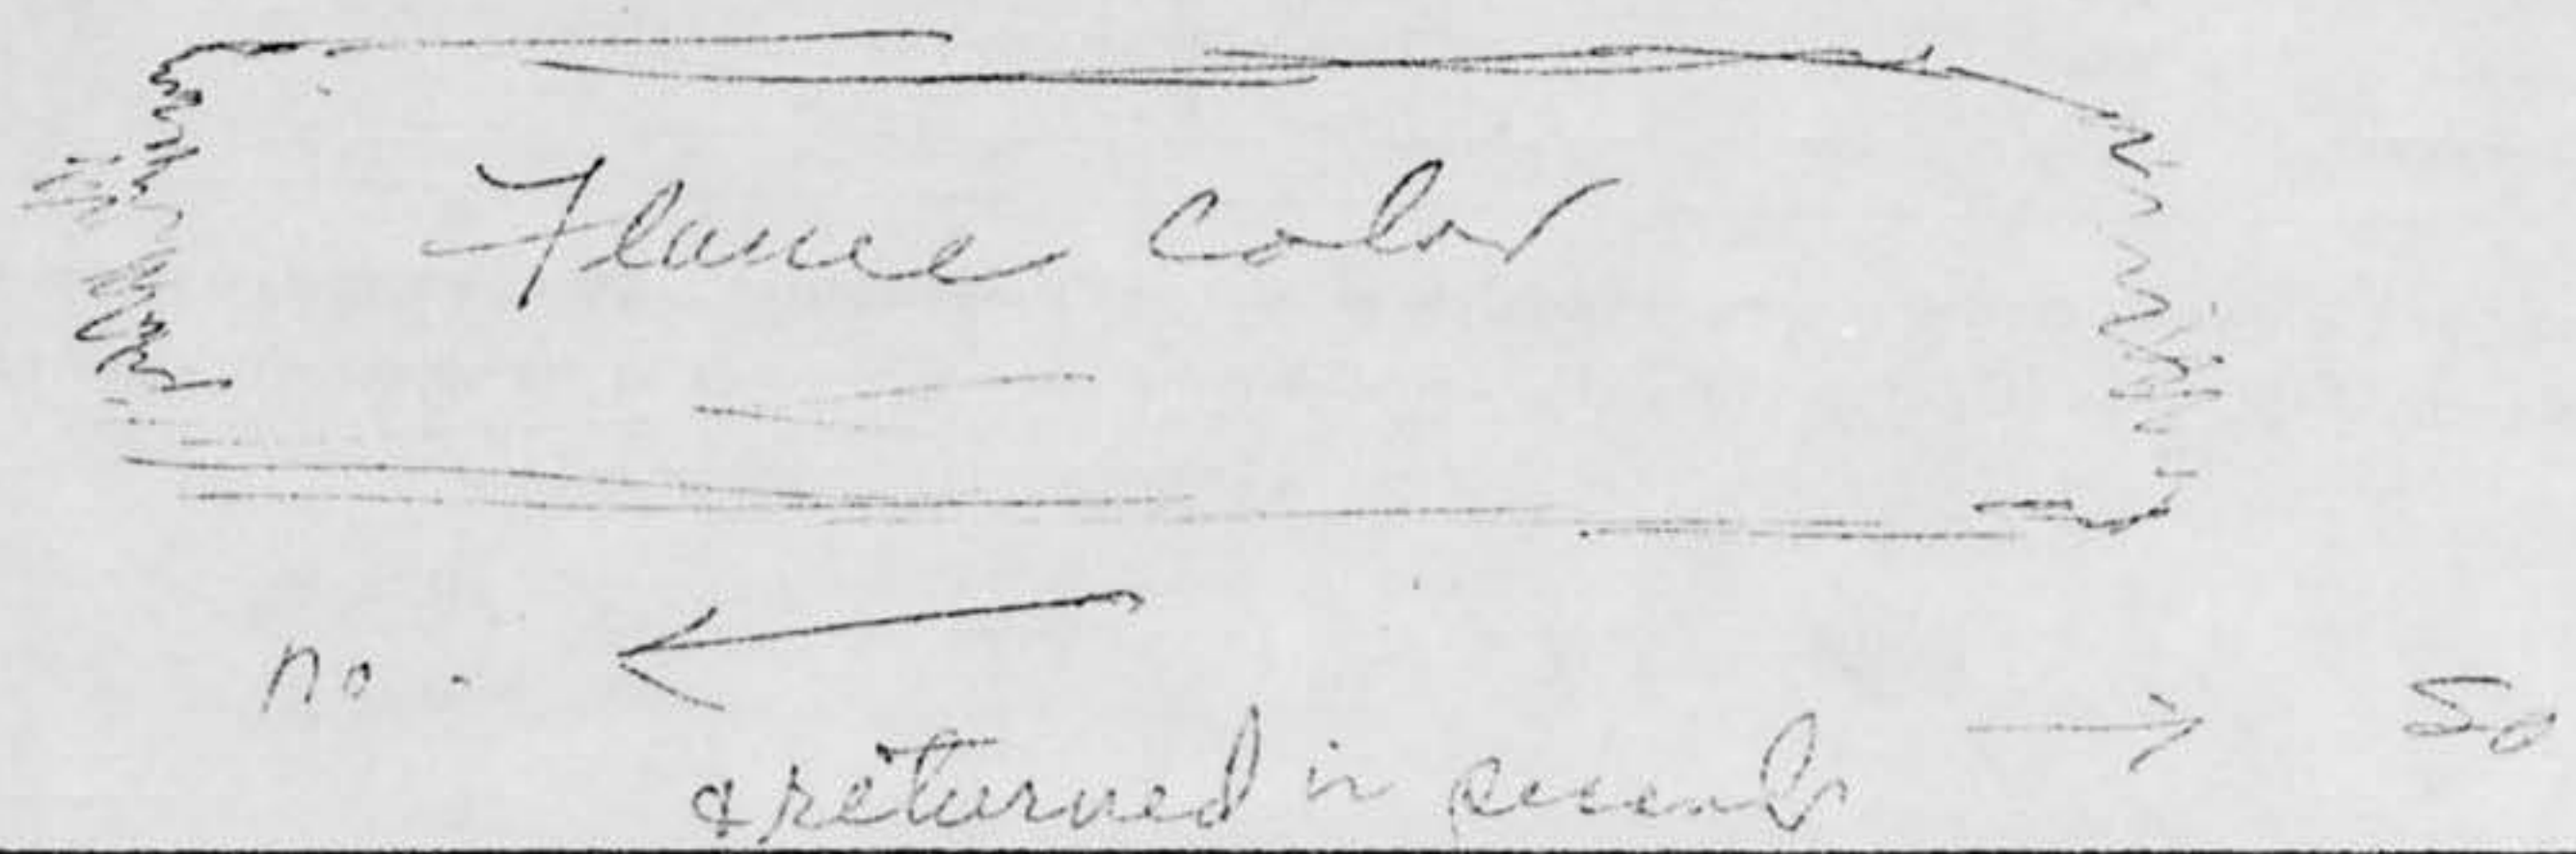 Flame color
no. ← 
→ So
& returned in seconds